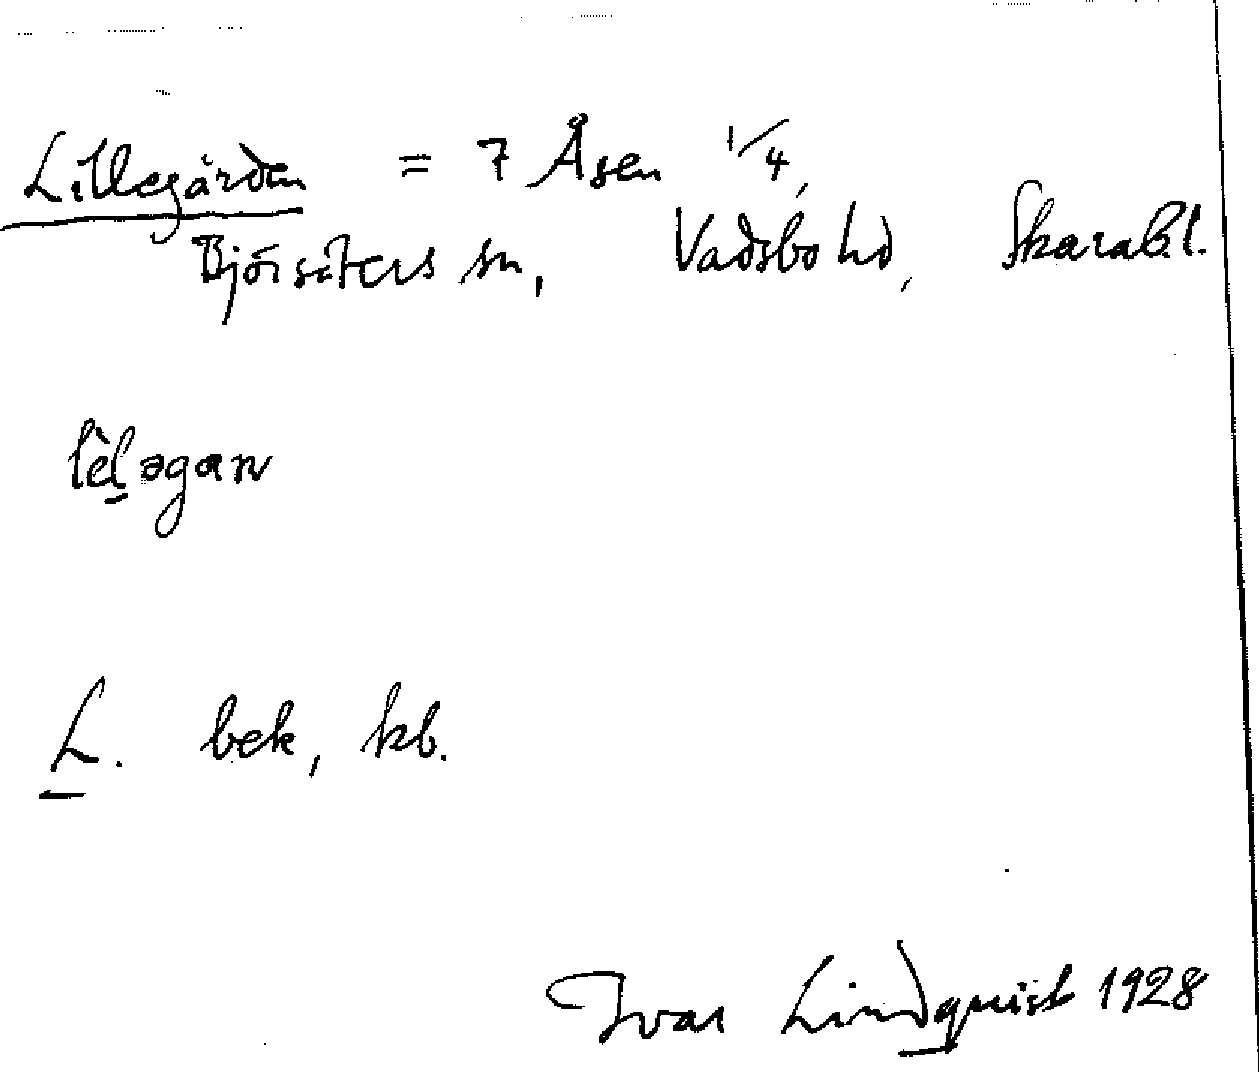 Lillegården = 7 Åsen 1/4,
Björsäters sn, Vadsbo hd, Skarab.l.
lèl̠əgan
L. bek, kb.
Ivar Lindquist 1928